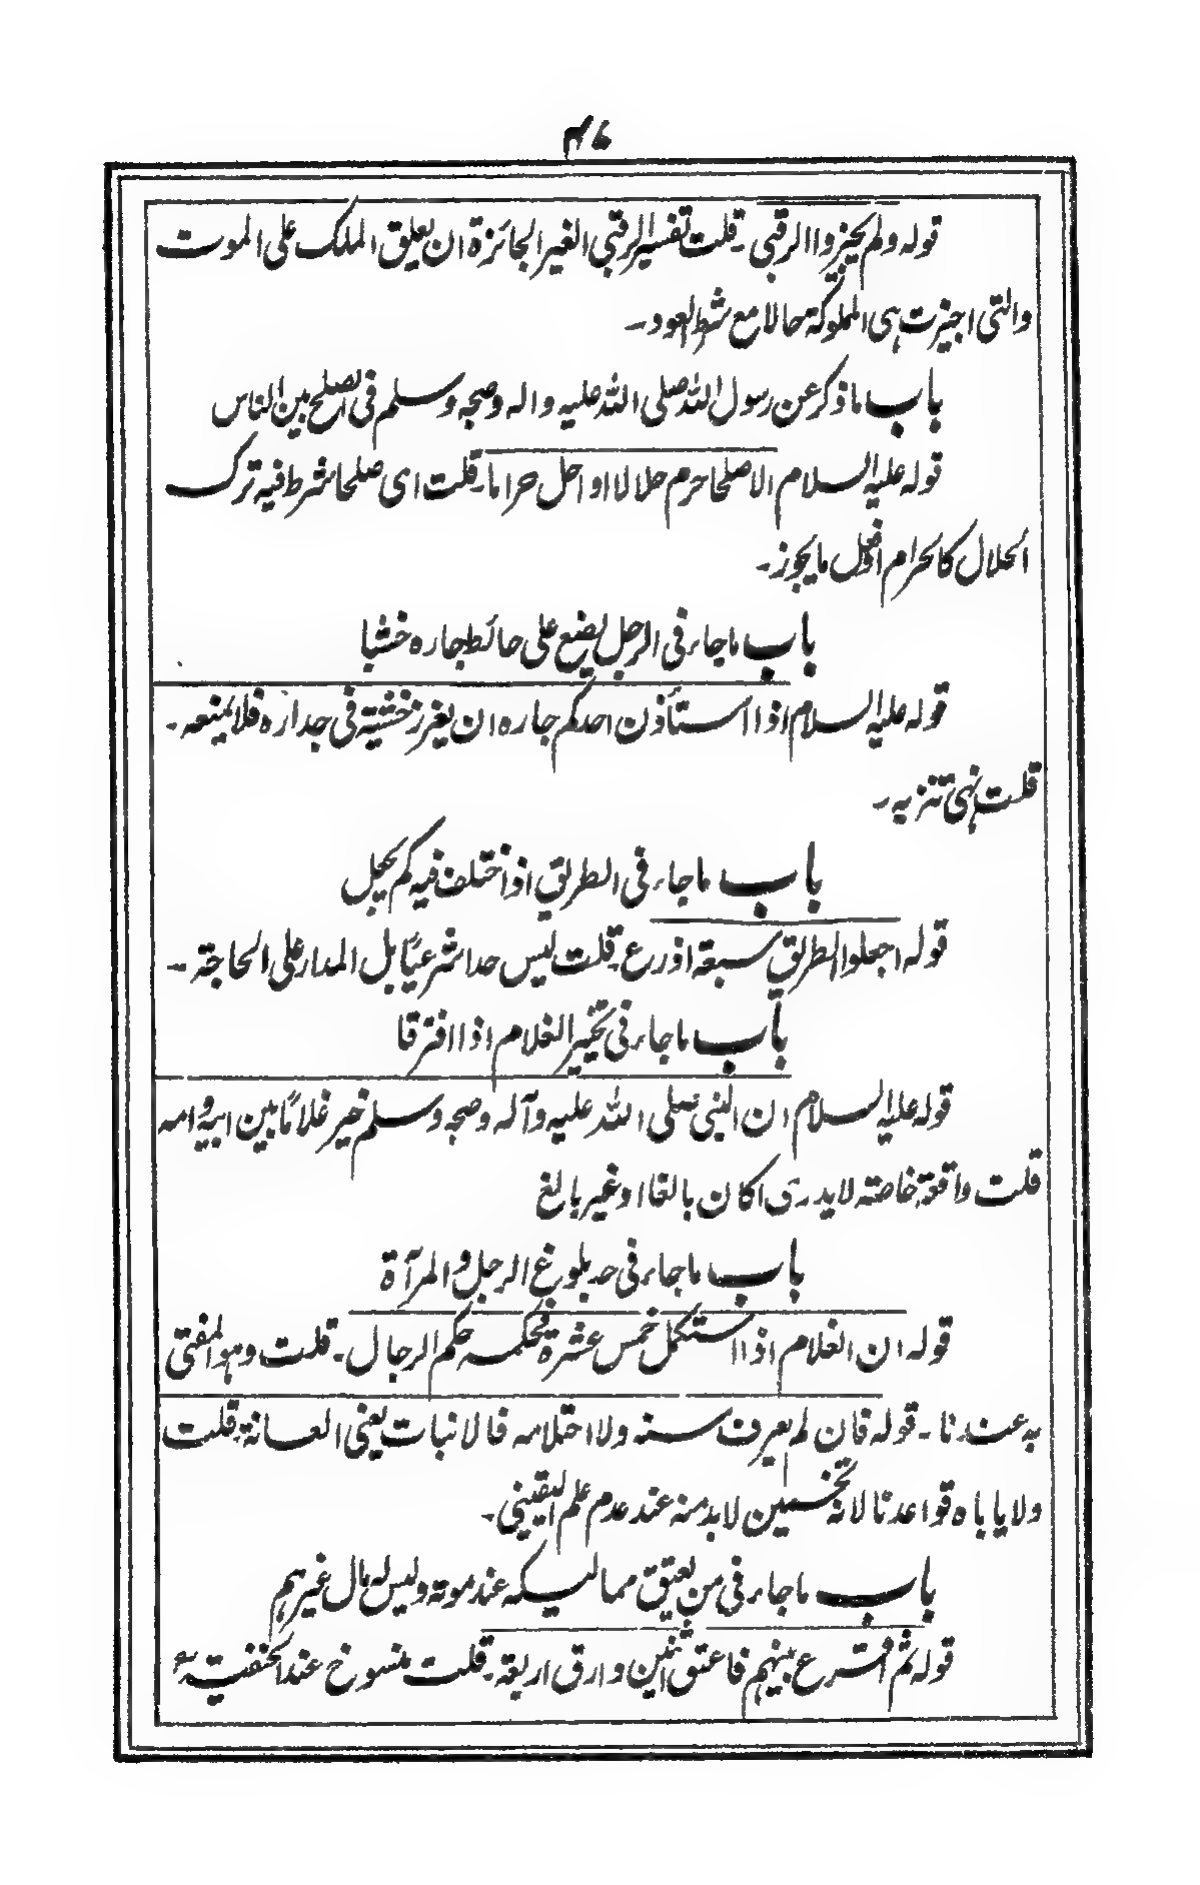 ۴۷
قوله ولم يجيزوا الرقبى ۔ قلت تفسير الرقبى الغير الجائزة ان يعلق الملك على الموت
والتى اجيزت هى المملوكة حالا مع شرط العود ۔
باب ما ذكر عن رسول الله صلى الله عليه واله وصحبه وسلم فى الصلح بين الناس
قوله عليه السلام الا صلحا حرم حلالا او احل حراما ۔ قلت اى صلحا شرط فيه ترك
الحلال كالحرام افعل ما يجوز ۔
باب ما جاء فى الرجل يضع على حائط جاره خشبا
قوله عليه السلام اذا استأذن احدكم جاره ان يغرز خشبة فى جداره فلا يمنعه ۔
قلت نهى تنزيه ۔
باب ما جاء فى الطريق اذا اختلف فيه كم يجعل
قوله اجعلوا الطريق سبعة اذرع ۔ قلت ليس حدا شرعيًا بل المدار على الحاجة ۔
باب ما جاء فى تخيير الغلام اذا افترقا
قوله عليه السلام ان النبى صلى الله عليه وآله وصحبه وسلم خير غلامًا بين ابيه وامه
قلت واقعة خاصة لا يدرى اكان بالغا او غير بالغ
باب ما جاء فى حد بلوغ الرجل و المرآة
قوله ان الغلام اذا استكمل خمس عشرة فحكمه حكم الرجال ۔ قلت وهو المفتى
به عندنا ۔ قوله فان لم يعرف سنه ولا احتلامه فالانبات يعنى العانة ۔ قلت
ولا يا باه قواعدنا لانه تخمين لابد منه عند عدم علم اليقينى ۔
باب ما جاء فى من يعتق مماليكه عند موته وليس له مال غيرهم
قوله ثم اقترع بينهم فاعتق اثنين وارق اربعة ۔ قلت منسوخ عند الحنفية